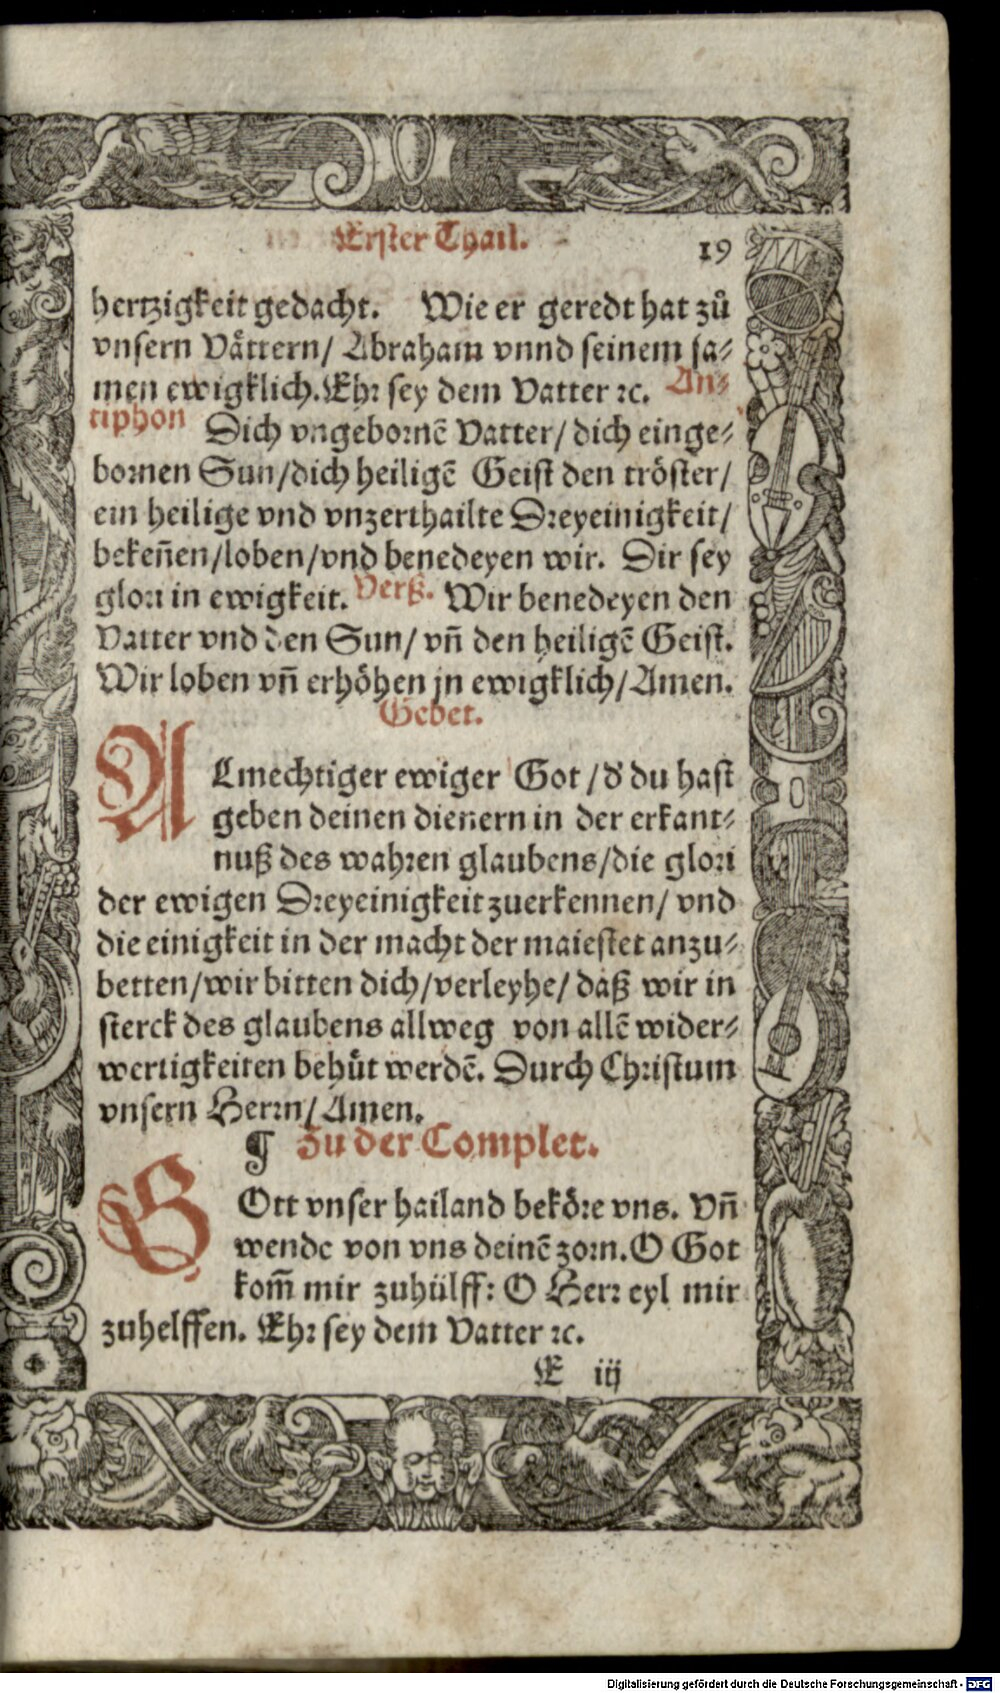 Erster Thail. 19
hertzigkeit gedacht. Wie er geredt hat zů
vnsern Vättern/ Abraham vnnd seinem sa-
men ewigklich. Ehr sey dem Vatter ꝛc. An-
tiphon Dich vngebornē Vatter/ dich einge-
bornen Sun/ dich heiligē Geist den tröster/
ein heilige vnd vnzerthailte Dreyeinigkeit/
bekeñen/ loben/ vnd benedeyen wir. Dir sey
glori in ewigkeit. Verß. Wir benedeyen den
Vatter vnd den Sun/ vñ den heiligē Geist.
Wir loben vñ erhöhen jn ewigklich/ Amen.
Gebet.
ALmechtiger ewiger Got/ d' du hast
geben deinen dienern in der erkant-
nuß des wahren glaubens/ die glori
der ewigen Dreyeinigkeit zuerkennen/ vnd
die einigkeit in der macht der maiestet anzu-
betten/ wir bitten dich/ verleyhe/ daß wir in
sterck des glaubens allweg von allē wider-
wertigkeiten behüt werdē. Durch Christum
vnsern Herrn/ Amen.
¶ Zu der Complet.
GOtt vnser hailand beköre vns. Vñ
wende von vns deinē zorn. O Got
kom̃ mir zuhülff: O Herr eyl mir
zuhelffen. Ehr sey dem Vatter ꝛc.
E iij
Digitalisierung gefördert durch die Deutsche Forschungsgemeinschaft - DFG